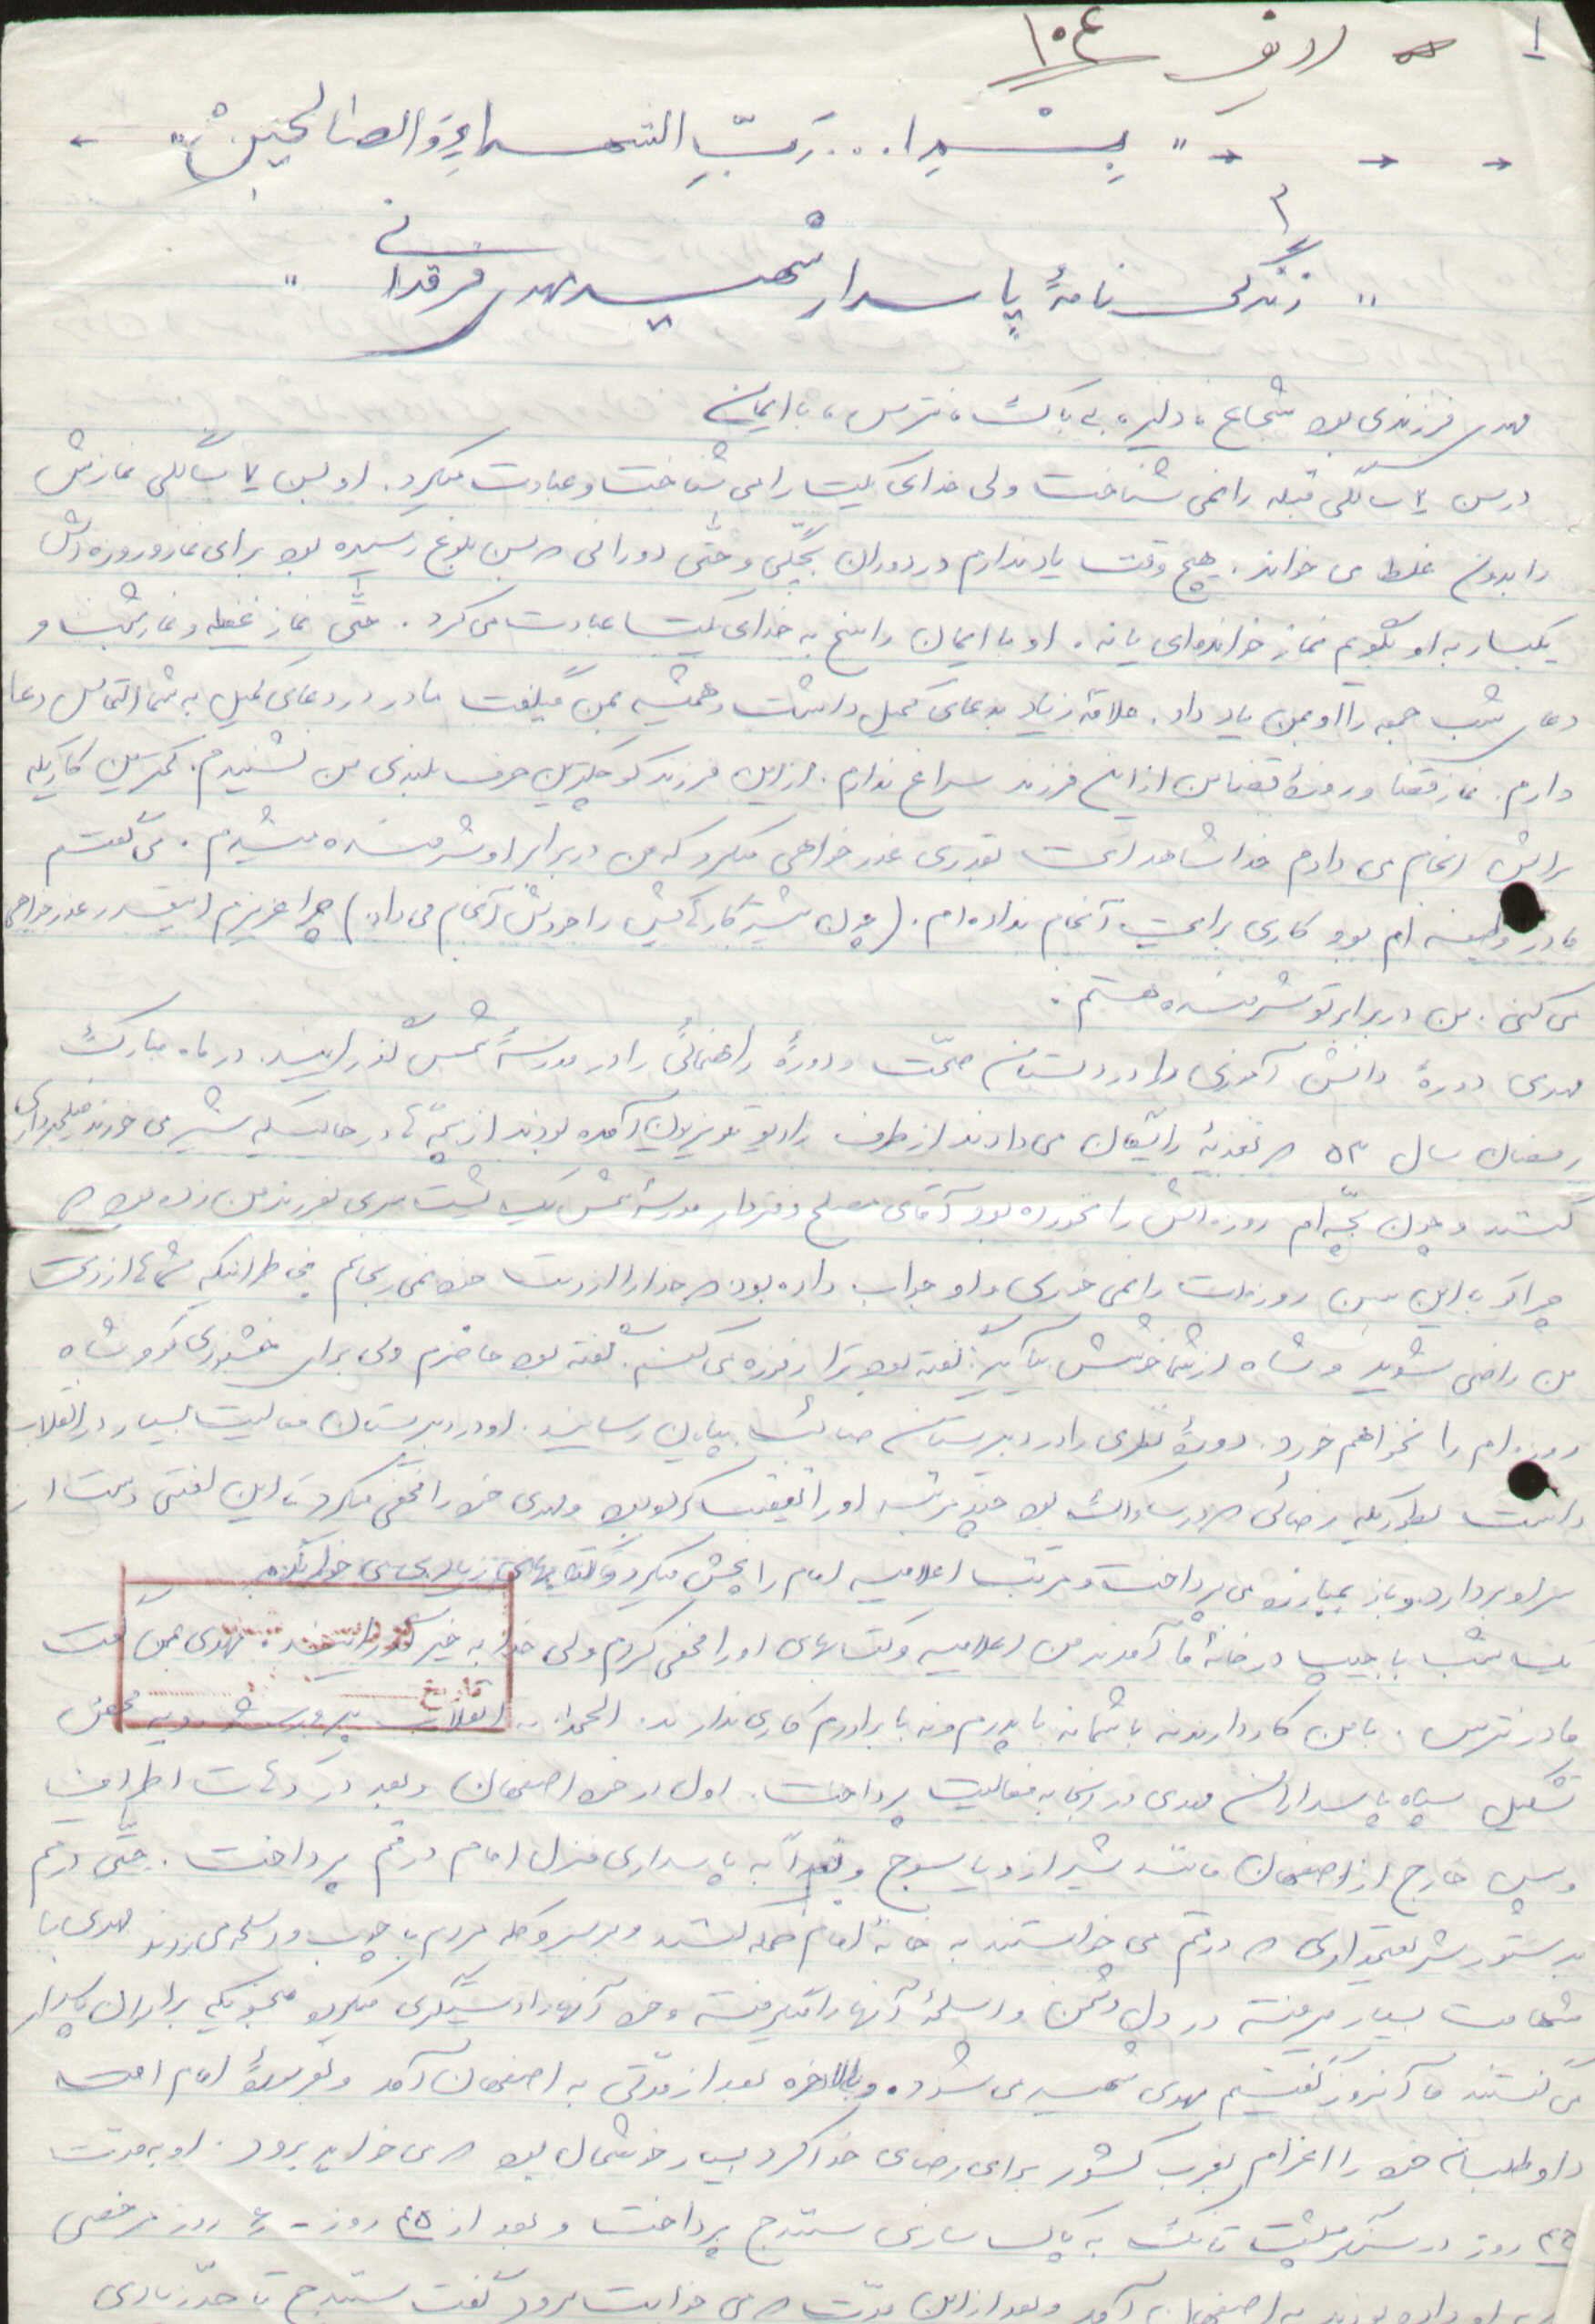 ۱ ردیف ۱۰۴
" بسم ا... رَبِّ الشهداءِ وَ الصالحین "
" زندگی نامهٔ پاسدار شهید مهدی فرقدانی "
مهدی فرزندی بود شجاع، دلیر، بی باک، نترس، با ایمان
در سن ۲ سالگی قبله را نمی شناخت ولی خدای یکتا را می شناخت و عبادت میکرد. او بسن ۷ سالگی نمازش
را بدون غلط می خواند. هیچ وقت یاد ندارم در دوران بچگی و حتّی دورانی که بسن بلوغ رسیده بود برای نماز و روزه اش
یکبار به او بگویم نماز خوانده‌ای یا نه. او با ایمان راسخ به خدای یکتا عبادت می کرد. حتّی نماز غفیله و نماز شب و
دعای شب جمعه را او بمن یاد داد. علاقهٔ زیاد بدعای کمیل داشت و همیشه بمن میگفت مادر در دعای کمیل به شما التماس دعا
دارم. نماز قضا و روزهٔ قضا من از این فرزند سراغ ندارم. از این فرزند کوچکترین حرف بلندی من نشنیدم. کمترین کاریکه
برایش انجام می دادم خدا شاهد است بقدری عذر خواهی میکرد که من در برابر او شرمنده میشدم. می گفتم
مادر وظیفه ام بود کاری برایت انجام نداده ام. (چون بیشتر کارهایش را خودش انجام می داد) چرا عزیزم اینقدر عذر خواهی
می کنی. من در برابر تو شرمنده هستم.
مهدی دورهٔ دانش آموزی را در دبستان صحّت و دورهٔ راهنمائی را در مدرسهٔ شمس گذراند. در ماه مبارک
رمضان سال ۵۳ که تغذیهٔ رایگان می دادند از طرف رادیو تلویزیون آمده بودند از بچّه ها در حالیکه شیر می خورند فیلمبرداری
کنند و چون بچّه ام روزه اش را نخورده بود آقای مصلح دفتردار مدرسهٔ شمس یک پشت سری بفرزند من زده بود که
چرا تو با این سن روزه ات را نمی خوری و او جواب داده بود که خدا را از دست خود نمی رنجانم بخاطر اینکه شما از دست
من راضی شوید و شاه از شما خوشش بیاید. گفته بود ترا رفوزه می کنم. گفته بود حاضرم ولی برای خشنودی تو و شاه
روزه ام را نخواهم خورد. دورهٔ نظری را در دبیرستان صائب بپایان رسانید. او در دبیرستان فعالیت بسیار در انقلاب
داشت بطوریکه رضائی که در ساواک بود چند مرتبه او را تعقیب کرده بود و مهدی خود را مخفی میکرد تا این لعنتی دست از
سر او بردارد و باز بمبارزه می پرداخت و مرتب اعلامیه امام را پخش میکرد و کتابهای زیادی می خواند.
یک شب با جیپ در خانهٔ ما آمدند من اعلامیه و کتابهای او را مخفی کردم ولی خدا به خیر گذرانید. مهدی بمن گفت
مادر نترس. با من کار دارند نه با شما نه با پدرم و نه با برادرم کاری ندارند. الحمدا... انقلاب پیروز شد و به محض
تشکیل سپاه پاسداران مهدی در آنجا به فعالیت پرداخت. اول در خود اصفهان و بعد در دهات اطراف
و سپس خارج از اصفهان مانند شیراز و یاسوج و بعداً به پاسداری منزل امام در قم پرداخت. حتّی در قم
بدستور شریعتمداری که در قم می خواستند به خانهٔ امام حمله کنند و بر سر و کله مردم با چوب و اسلحه می زدند مهدی با
شهامت بسیار میرفته در دل دشمن و اسلحهٔ آنها را میگرفته و خود آنها را دستگیری میکرد بنحویکه برادران پاسدار
می گفتند ما آنروز گفتیم مهدی شهید می شود. و بالاخره بعد از مدّتی به اصفهان آمد و بفرمودهٔ امام امت
داوطلبانه خود را اعزام بغرب کشور برای رضای خدا کرد بسیار خوشحال بود که می خواهد برود. او به مدت
۴۵ روز در سنگر پشت تانک به پاک سازی سنندج پرداخت و بعد از ۴۵ روز روز مرخصی
به او داده بودند به اصفهان آمد و بعد از این مدّت که می خواست برود گفت سنندج تا حدّ زیادی
تاریخ